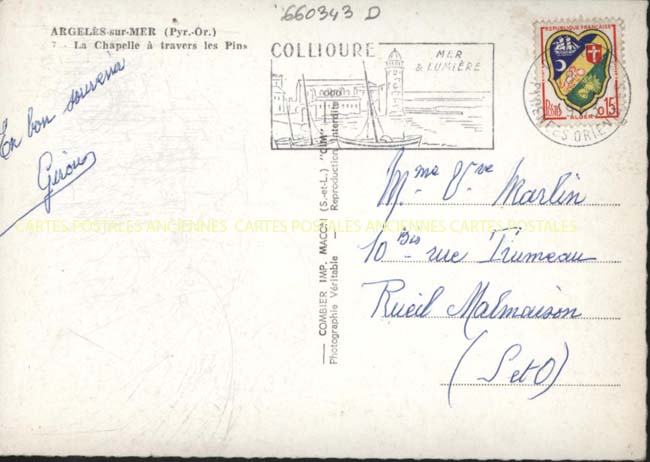 660343 D
ARGELÈS-sur-MER (Pyr.-Or.)
7 - La Chapelle à travers les Pins
En bon souvenir
COLLIOURE
MER
& LUMIÈRE
REPUBLIQUE FRANÇAISE
POSTES
0,15
ALGER
ORIENT
CARTES POSTALES ANCIENNES CARTES POSTALES ANCIENNES CARTES POSTALES
COMBIER IMP. MACON (S.-et-L.) "CIM"
Photographie Véritable — Reproduction Interdite
Mme Vve Martin
10 Bis rue Trumeau
Rueil Malmaison
(S et O)